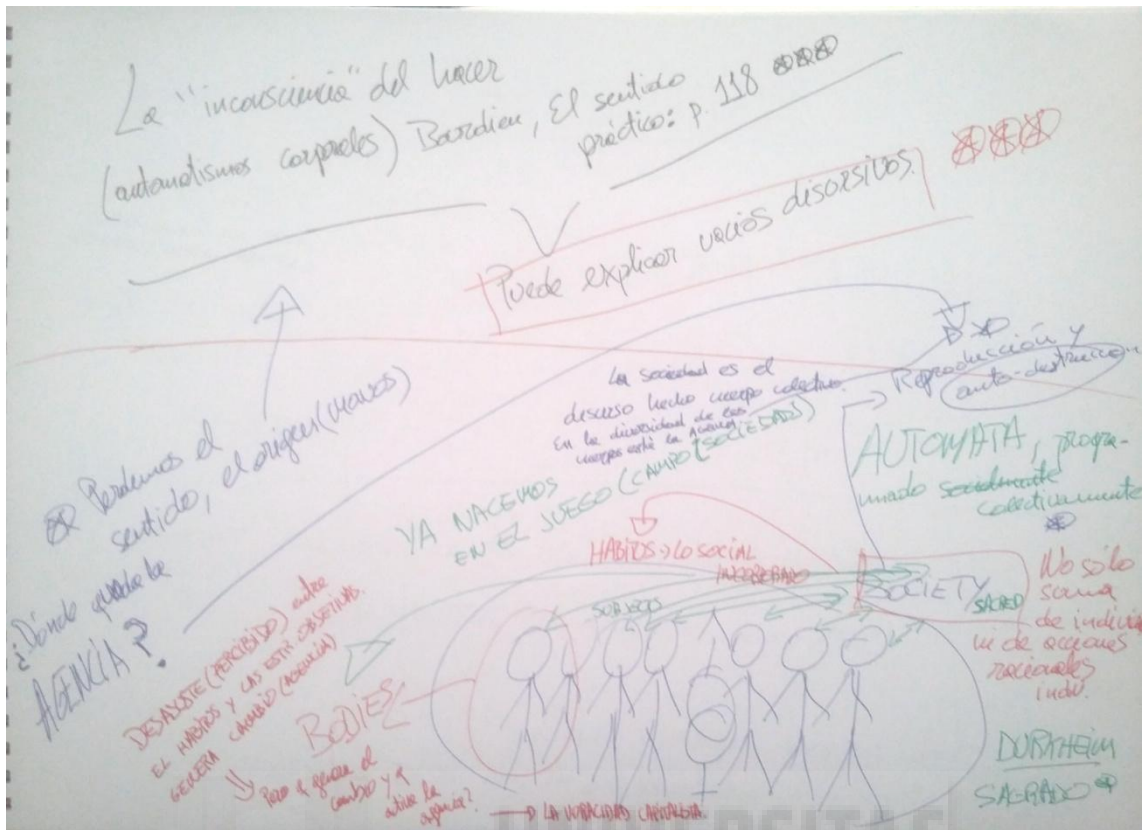 La "inconsciencia" del hacer
(automatismos corporales) Bourdieu, El sentido
práctico: p. 118
Puede explicar vacíos discursivos.
Perdemos el
sentido, el origen (manos)
¿Dónde queda la
AGENCIA?
La sociedad es el
discurso hecho cuerpo colectivo.
En la diversidad de los
cuerpos está la agencia
Reproducción y
auto-destrucción
YA NACEMOS
EN EL JUEGO (CAMPO (SOCIEDAD))
AUTOMATA, progra-
mado socialmente
colectivamente
HABITUS > LO SOCIAL
INCORPORADO
SOCIETY
SACRED
SUBJECTS
No sólo
suma
de individ
ni de acciones
racionales
indiv.
DESAJUSTE (PERCIBIDO) entre
EL HABITUS Y LAS ESTR. OBJETIVAS.
GENERA CAMBIO (AGENCIA)
BODIES
Pero q genera el
cambio y q
activa la
agencia?
LA VORACIDAD CAPITALISTA.
DURKHEIM
SAGRADO
UNIVERSITAS